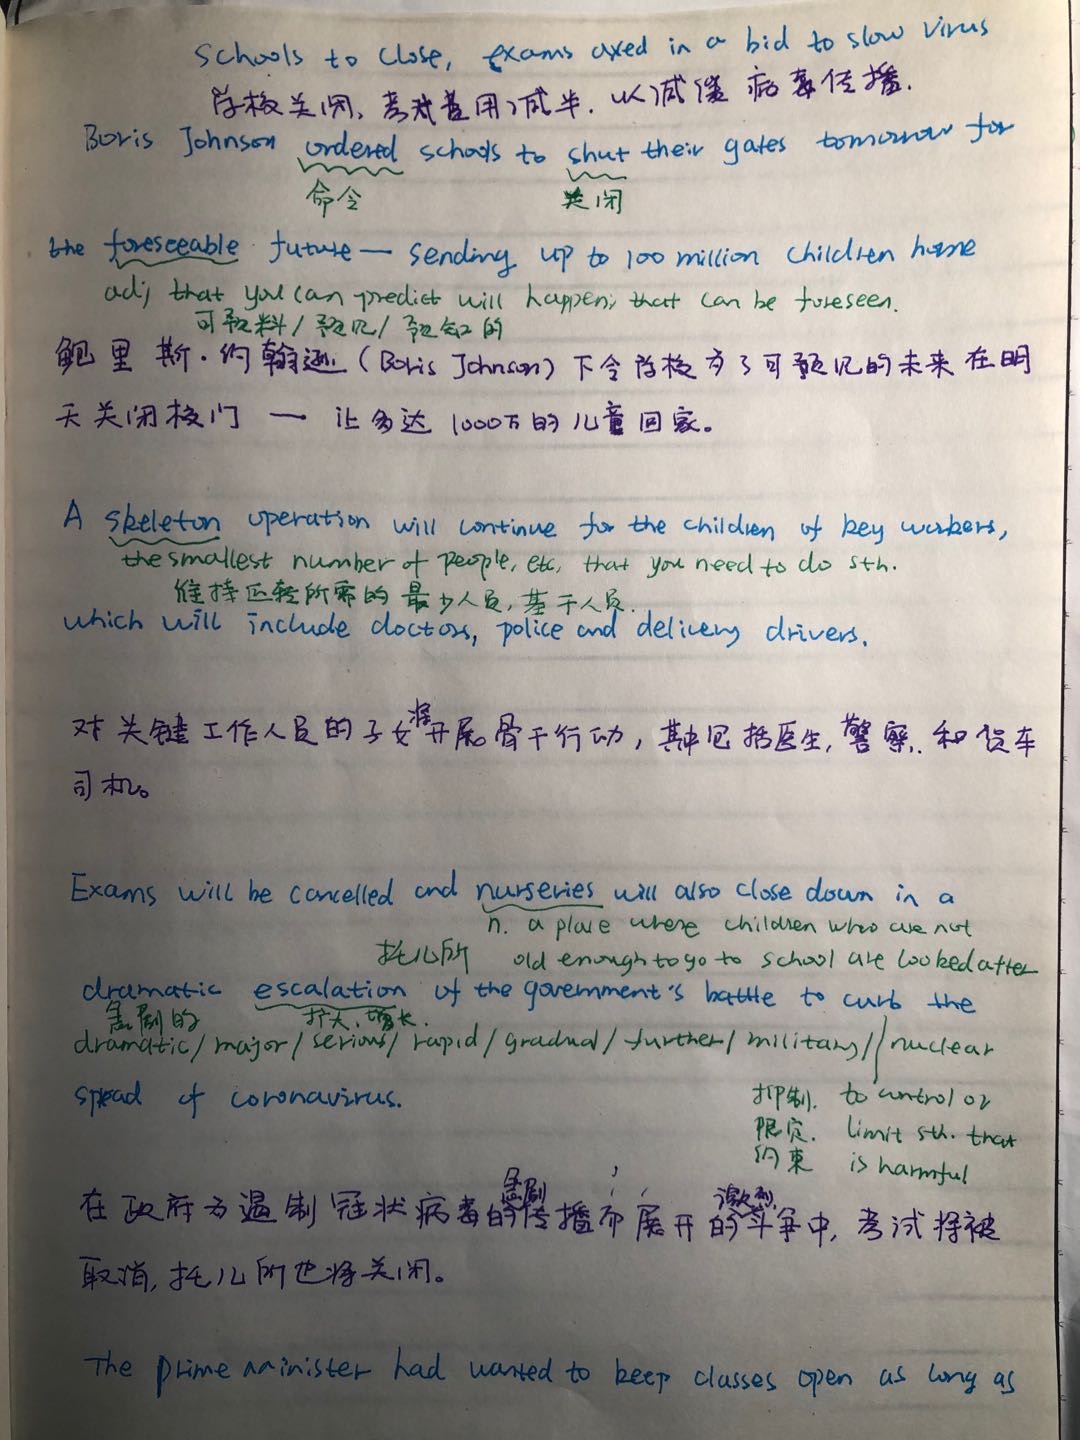 Schools to close, exams axed in a bid to slow virus
学校关闭,考试费用减半,以减缓病毒传播.
Boris Johnson ordered schools to shut their gates tomorrow for
命令 关闭
the foreseeable future — sending up to 100 million children home
adj that you can predict will happen; that can be foreseen.
可预料/预见/预知的
鲍里斯·约翰逊(Boris Johnson)下令学校为了可预见的未来在明
天关闭校门 — 让多达1000万的儿童回家。
A skeleton operation will continue for the children of key workers,
the smallest number of people, etc, that you need to do sth.
维持运转所需的最少人员,基干人员.
which will include doctors, police and delivery drivers.
将
对关键工作人员的子女开展骨干行动,其中包括医生,警察,和货车
司机。
Exams will be cancelled and nurseries will also close down in a
n. a place where children who are not
托儿所 old enough to go to school are looked after
dramatic escalation of the government's battle to curb the
急剧的 扩大、增长.
dramatic/major/serious/rapid/gradual/further/military/nuclear
spread of coronavirus.
抑制. to control or
限定. limit sth. that
约束 is harmful
急剧 激烈
在政府为遏制冠状病毒的传播而展开的斗争中,考试将被
取消,托儿所也将关闭。
The prime minister had wanted to keep classes open as long as